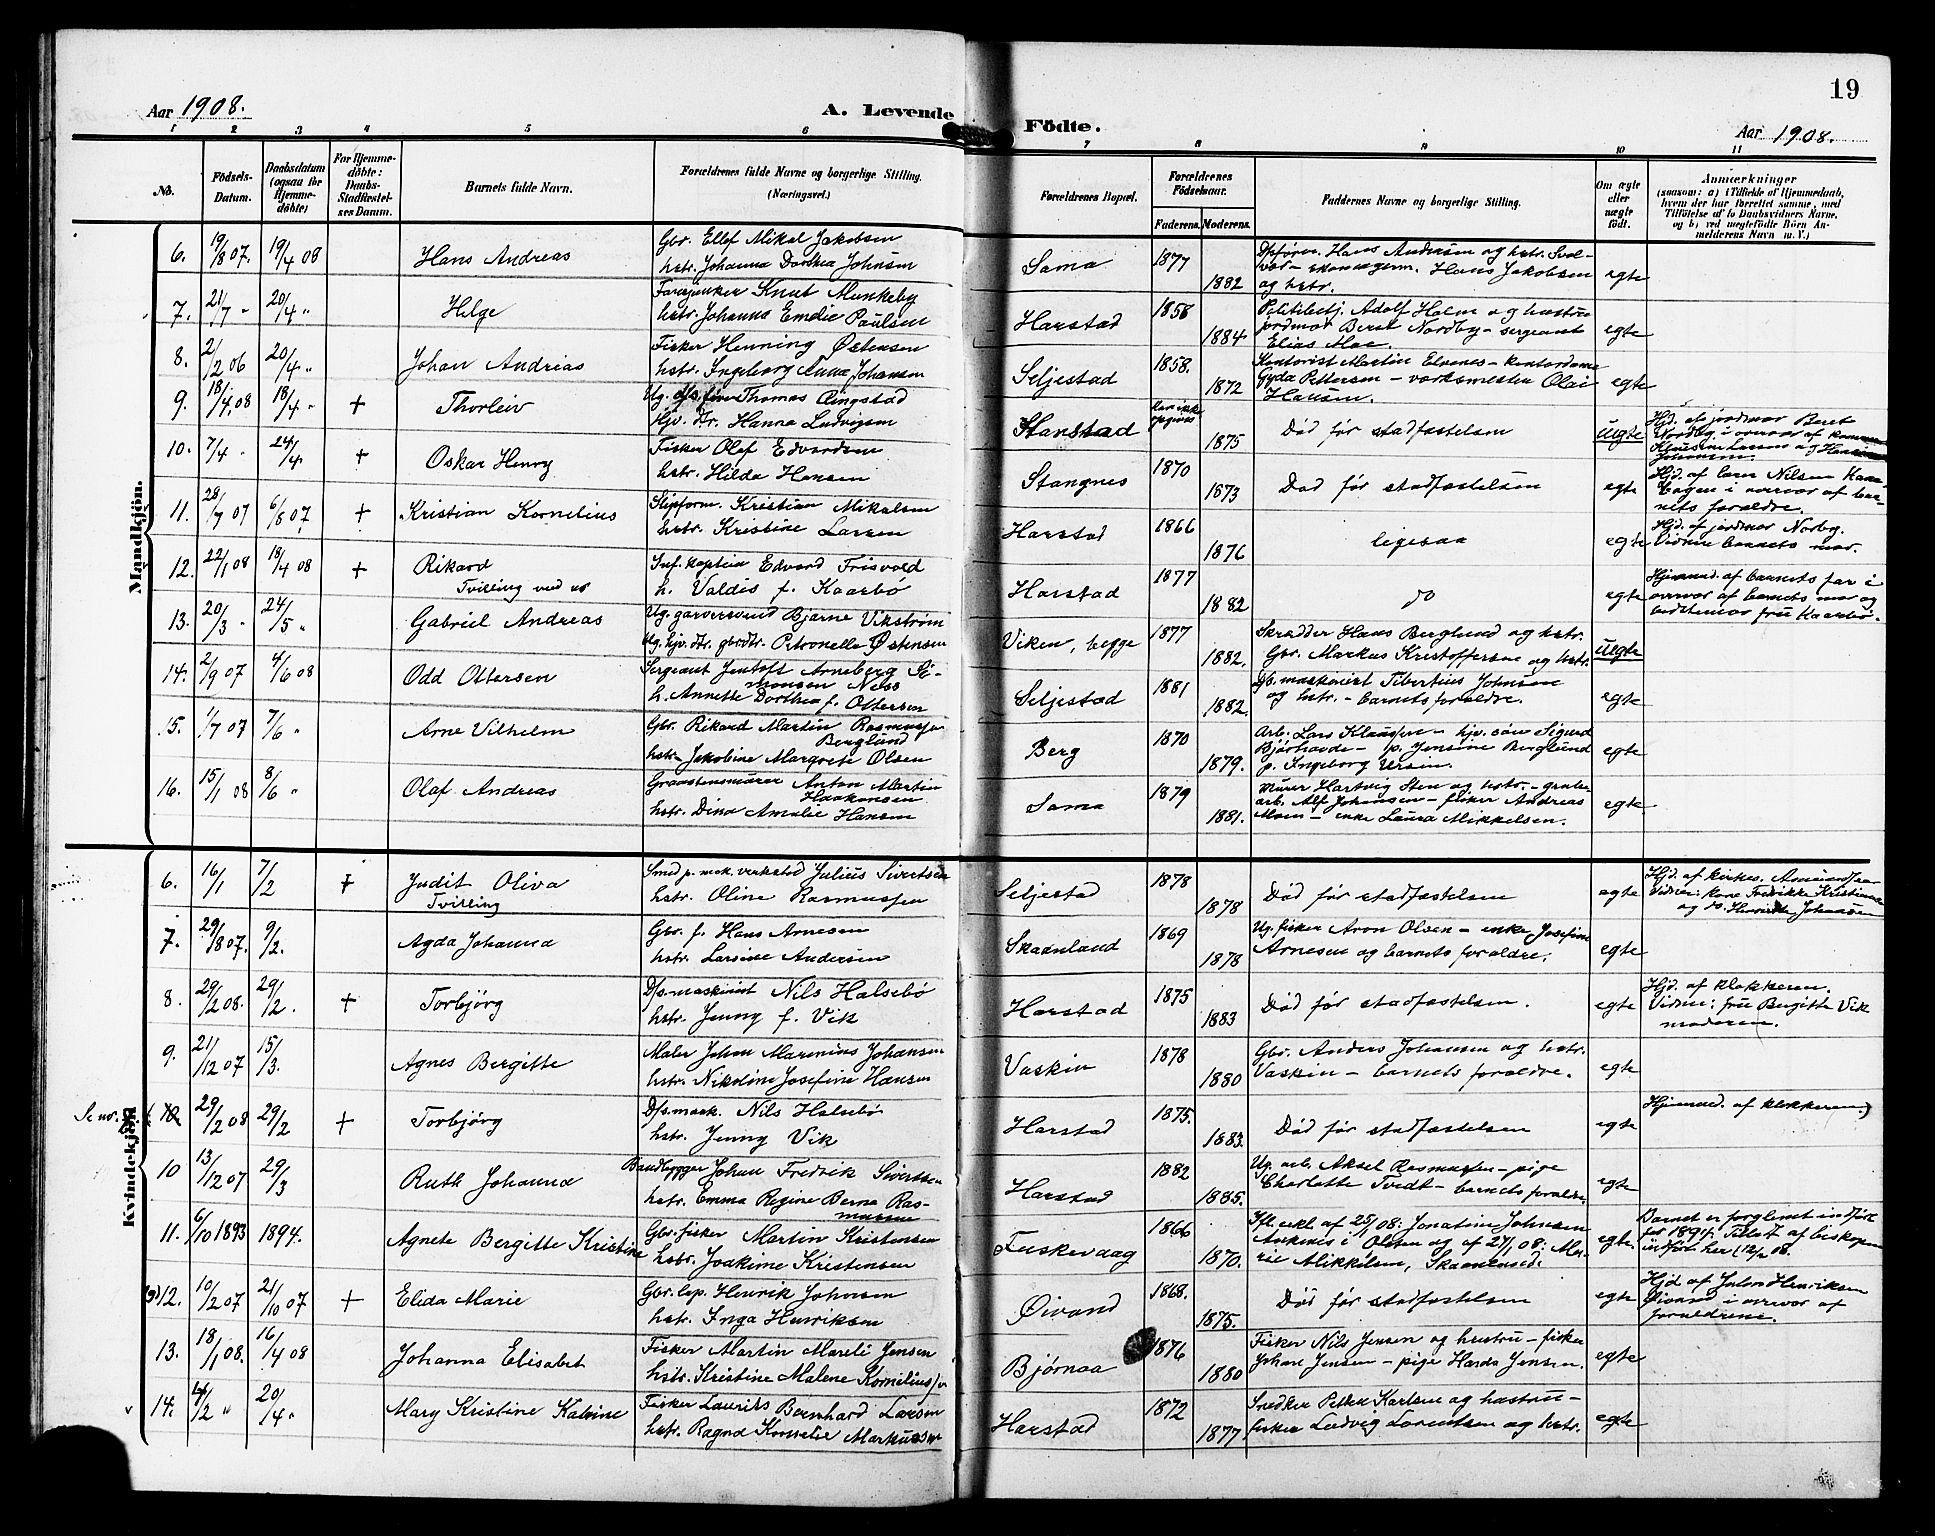 19
Aar 1908.
A. Levende Födte.
Aar 1908.
1 2 3 4 5 6 7 8 9 10 11
No.
Födsels-Datum.
Daabsdatum (ogsaa for Hjemme-döbte)
For Hjemme-döbte: Daabs-Stadfæstel-ses Datum.
Barnets fulde Navn.
Forældrenes fulde Navne og borgerlige Stilling. (Næringsvei.)
Forældrenes Bopæl.
Forældrenes Födselsaar.
Faderens. Moderens.
Faddernes Navne og borgerlige Stilling.
Om ægte eller uægte födt.
Anmærkninger
(saasom: a) i Tilfælde af Hjemmedaab,
hvem der har forrettet samme, med
Tilföielse af to Daabsvidners Navne,
og b) ved uægtefödte Börn An-
melderens Navn m. V.)
Mandkjön.
6. 19/8 07. 19/4 08 Hans Andreas
Gbr. Ellef Mikal Jakobsen
hstr. Johanna Dorthea Johnsen
Sama 1877 1882
Hans Andersen og hstr. Svol-
vær - Hans Jakobsen
og hstr.
egte
7. 21/7 " 20/4 " Hilge
Knut Munkeby
hstr. Johanna Emelie Paulsen
Harstad 1858 1884
Politibetj. Adolf Holm og hustru
jordmor Beret Nordby - sergeant
Elias Moe.
egte
8. 2/2 06 20/4 " Johan Andreas
Fisker Henning Østensen
hstr. Ingeborg Anna Johansen
Seljestad 1858. 1872
Kontorist Martin Elvenes - kontordame
Gyda Pettersen - verksmester Olai
Hansen.
egte
9. 18/4 08 18/4 " + Thorleiv
Ug. d/s. fyrb. Thomas Ringstad
Hjv. dtr. Hanna Ludvigsen
Harstad 1875
Død før stadfæstelsen
Uegte
Hjd. af jordmor Beret
Nordby i overvær af
10. 7/4 " 24/4 + Oskar Henry
Fisker Olaf Edvardsen
hstr. Hilda Hansen
Stangnes 1870 1873
Død før stadfæstelsen
egte
Hjd. af lærer Nilsen
i overvær af bar-
nets forældre.
11. 28/7 07 6/8 07 + Kristian Kornelius
Skipform. Kristian Mikalsen
hstr. Kristine Larsen
Harstad 1866 1876
ligesaa
egte
Hjd. af jordmor Norby.
Vidner barnets mor.
12. 22/1 08 18/4 08 + Rikard
Tvilling ved
Inf. kaptein Edvard Frisvold
h. Valdis f. Kaarbø
Harstad 1877 1882
do
egte
Hjemmed. af barnets far i
overvær af barnets mor og
bedstemor fru Kaarbø.
13. 20/3 " 24/5 " Gabriel Andreas
Ug. garversvend Bjarne Vikstrøm
Ug. hjv. dtr. gbrdtr. Petronelle Østensen
Viken, begge 1877 1882.
Skrædder Hans Berglund og hstr.
Gbr. Markus Kristoffersen og hstr.
Uegte
14. 2/9 07 4/6 08 Odd Ottersen
Sergeant Jentoft Arneberg Si-
monsen Ness
h. Annette Dorthea f. Ottersen
Seljestad 1881 1882.
maskinist Tibertius Johnsen
og hstr. - barnets forældre.
egte
15. 1/7 07 7/6 " Arne Vilhelm
Gbr. Rikard Martin Rasmussen
Berglund
hstr. Jakobine Margrete Olsen
Berg 1870 1879.
Arb. Lars Klaussen - hjv. søn Sigurd
- p. Jensine Berglund
p. Ingeborg Ursin.
egte
16. 15/1 08 8/6 " Olaf Andreas
Graastensmurer Anton Martin
Haakonsen
hstr. Dina Amalie Hansen
Sama 1879 1881.
Murer Hartvig Sten og hstr. - grube-
arb. Alf Johansen - fisker Andreas
Moen - enke Laura Mikkelsen.
egte
Kvindekjön.
6. 16/1 7/2 + Judit Oliva
Tvilling
Smed p. mek. verksted Julius Sivertsen
hstr. Oline Rasmussen
Seljestad 1878 1878
Død før stadfæstelsen
egte
Hjd. af kirkes.
Vidner: kone Fredrikke Kristiansen
og do. Henrikke Johansen
7. 29/8 07. 9/2. Agda Johanna
Gbr. f. Hans Arnesen
hstr. Larsine Andersen
Skaanland 1869 1878
Ug. fisker Aron Olsen - enke Josefine
Arnesen og barnets forældre.
egte
8. 29/2 08. 29/2. + Torbjørg
D/s. maskinist Nils Halsebø
hstr. Jenny f. Vik
Harstad 1875 1883
Død før stadfæstelsen.
egte
Hjd. af klokkeren.
Vidner: frue Bergitte Vik
moderen.
9. 21/12 07 15/3. Agnes Bergitte
Maler Johan Marenius Johansen
hstr. Nikoline Josefine Hansen
Vaskin 1878 1880
Gbr. Anders Johansen og hstr.
Vaskin - barnets forældre.
egte
Se no. 8. 10 29/2 08 29/2 + Torbjørg
D/s. mask. Nils Halsebø
hstr. Jenny Vik
Harstad 1875. 1883.
Død før stadfæstelsen
egte
Hjemmed. af klokkeren.)
10 13/12 07 29/3 Ruth Johanna
Baadbygger Johan Fredrik Sivertsen
hstr. Emma Regine Berna Ras-
mussen
Harstad 1882 1885.
Ug. arb. Aksel Rasmussen - pige
Charlotte Tvedt - barnets forældre.
egte
11. 6/10 1893 1894. Agnete Bergitte Kristine
Gbr. fisker Martin Kristensen
hstr. Joakime Kristensen
Fuskevaag 1866 1870.
Ifl. erkl. af 25/1 08: Jonatine Johnsen
Ankenes i Ofoten og af 27/1 08: Ma-
rie Mikkelsen,
egte.
Barnet er forglemt indført
for 1894. Tillat af biskopen
indført her 12/2 08.
(9) 12. 10/2 07 21/10 07 + Elida Marie
Gbr. Henrik Johansen
hstr. Inga Henriksen
Øivand 1868. 1875.
Død før stadfæstelsen
egte
Hjd af Henriksen
Øivand i overvær af
forældrene.
13. 18/1 08. 16/4 08 Johanna Elisabet
Fisker Martin Mareli Jensen
hstr. Kristine Malene Korneliussen
Bjørnaa 1876 1880
Fisker Nils Jensen og hustru - fisker
Johan Jensen - pige Harda Jensen.
egte
14. /2 " 20/4 " Mary Kristine Katrine
Fisker Laurits Bernhard Larsen
hstr. Ragna Kornelie Markussen
Harstad 1872 1877
Snedker Petter Karlsen og hustru -
fisker Ludvig Lorentsen og hstr.
egte